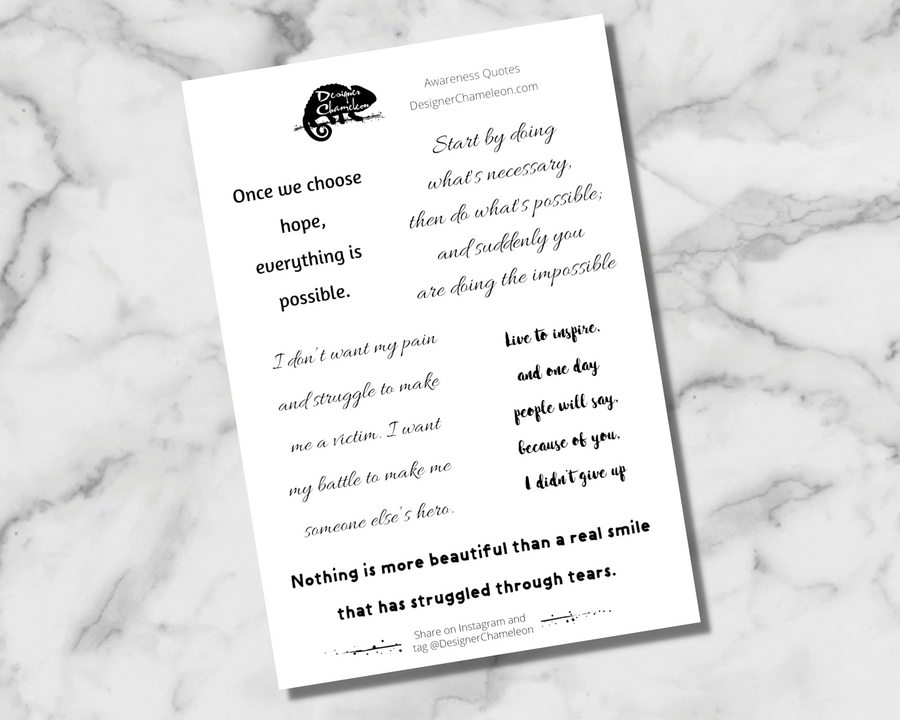 Designer
Chameleon
Art
Awareness Quotes
DesignerChameleon.com
Once we choose
hope,
everything is
possible.
Start by doing
what's necessary,
then do what's possible;
and suddenly you
are doing the impossible
I don't want my pain
and struggle to make
me a victim. I want
my battle to make me
someone else's hero.
Live to inspire,
and one day
people will say,
because of you,
I didn't give up
Nothing is more beautiful than a real smile
that has struggled through tears.
Share on Instagram and
tag @DesignerChameleon